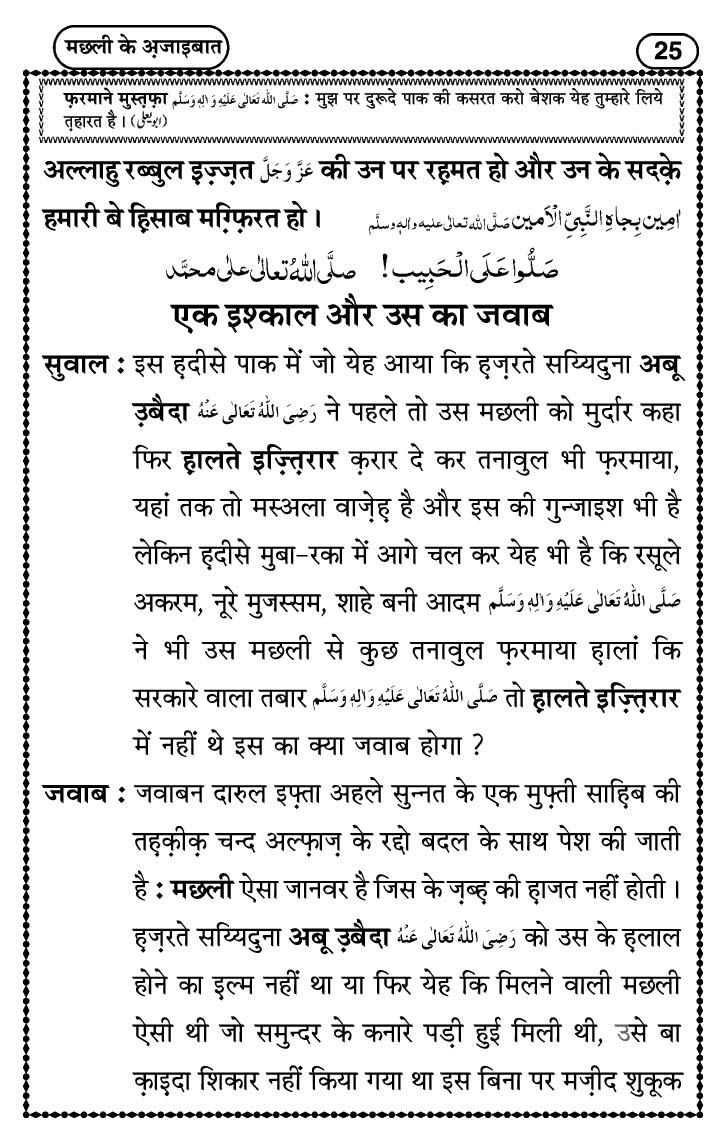 मछली के अ़जाइबात
25
फ़रमाने मुस्त़फ़ा صَلَّى اللهُ تَعَالٰى عَلَيْهِ وَاٰلِهٖ وَسَلَّم : मुझ पर दुरूदे पाक की कसरत करो बेशक येह तुम्हारे लिये
त़हारत है । (ابویعلیٰ)
अल्लाहु रब्बुल इ़ज़्ज़त عَزَّوَجَلَّ की उन पर रह़मत हो और उन के सदक़े
हमारी बे ह़िसाब मग़्फ़िरत हो । اٰمِين بِجَاهِ النَّبِىِّ الْاَمين صلَّى الله تعالٰى عليه واٰلهٖ وسلَّم
صَلُّوا عَلَى الْحَبِيب ! صلَّى اللهُ تعالٰى علٰى محمَّد
एक इश्काल और उस का जवाब
सुवाल : इस ह़दीसे पाक में जो येह आया कि ह़ज़रते सय्यिदुना अबू
उ़बैदा رَضِىَ اللهُ تَعَالٰى عَنْهُ ने पहले तो उस मछली को मुर्दार कहा
फिर ह़ालते इज़्त़िरार क़रार दे कर तनावुल भी फ़रमाया,
यहां तक तो मस्अला वाज़ेह़ है और इस की गुन्जाइश भी है
लेकिन ह़दीसे मुबा-रका में आगे चल कर येह भी है कि रसूले
अकरम, नूरे मुजस्सम, शाहे बनी आदम صَلَّى اللهُ تَعَالٰى عَلَيْهِ وَاٰلِهٖ وَسَلَّم
ने भी उस मछली से कुछ तनावुल फ़रमाया ह़ालां कि
सरकारे वाला तबार صَلَّى اللهُ تَعَالٰى عَلَيْهِ وَاٰلِهٖ وَسَلَّم तो ह़ालते इज़्त़िरार
में नहीं थे इस का क्या जवाब होगा ?
जवाब : जवाबन दारुल इफ़्ता अहले सुन्नत के एक मुफ़्ती साह़िब की
तह़क़ीक़ चन्द अल्फ़ाज़ के रद्दो बदल के साथ पेश की जाती
है : मछली ऐसा जानवर है जिस के ज़ब्ह़ की ह़ाजत नहीं होती ।
ह़ज़रते सय्यिदुना अबू उ़बैदा رَضِىَ اللهُ تَعَالٰى عَنْهُ को उस के ह़लाल
होने का इल्म नहीं था या फिर येह कि मिलने वाली मछली
ऐसी थी जो समुन्दर के कनारे पड़ी हुई मिली थी, उसे बा
क़ाइदा शिकार नहीं किया गया था इस बिना पर मज़ीद शुकूक